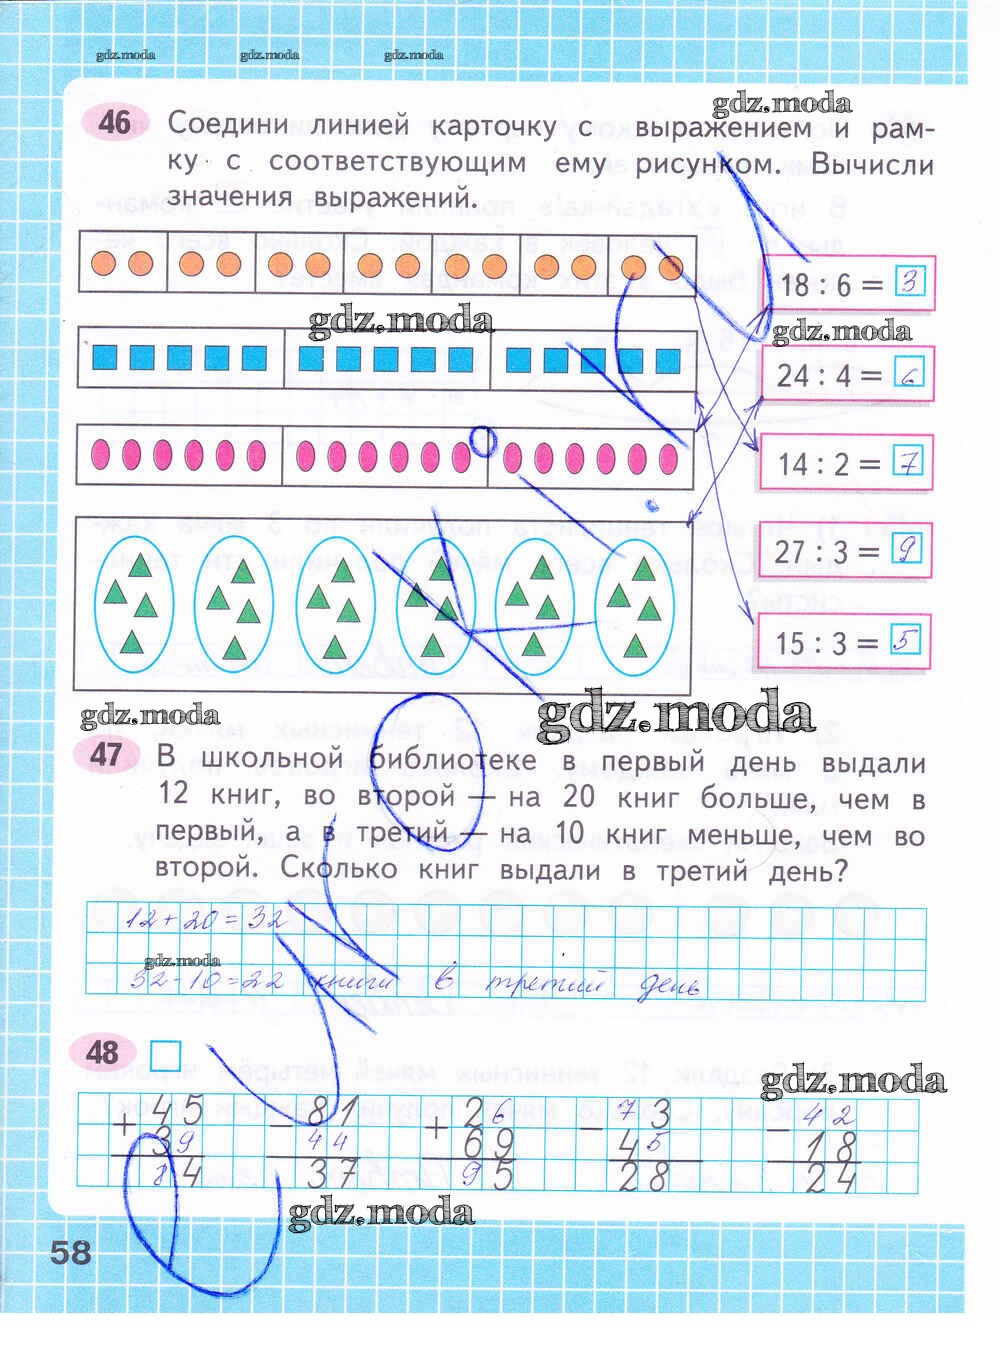 gdz.moda gdz.moda gdz.moda
gdz.moda
46 Соедини линией карточку с выражением и рам-
ку с соответствующим ему рисунком. Вычисли
значения выражений.
18 : 6 = 3
gdz.moda
gdz.moda
24 : 4 = 6
14 : 2 = 7
27 : 3 = 9
15 : 3 = 5
gdz.moda
gdz.moda
47 В школьной библиотеке в первый день выдали
12 книг, во второй — на 20 книг больше, чем в
первый, а в третий — на 10 книг меньше, чем во
второй. Сколько книг выдали в третий день?
12+20=32
gdz.moda
32-10=22 книги в третий день
48
gdz.moda
+ 45 - 81 + 26 - 73 - 42
39 44 69 45 18
84 37 95 28 24
gdz.moda
58